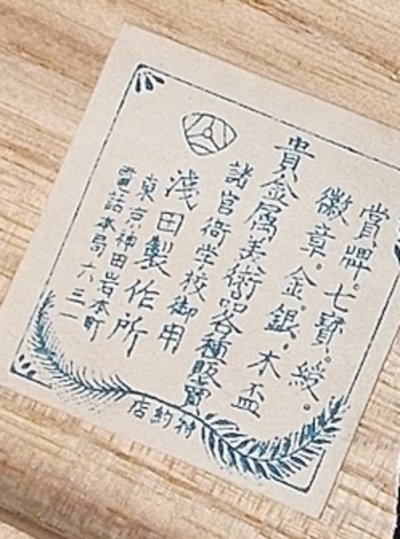 賞牌。七寶。綬。
徽章。金。銀。木盃
貴金属美術品各種販賣
諸官衙学校御用
淺田製作所
東京神田岩本町
電話本局六三一
特約店